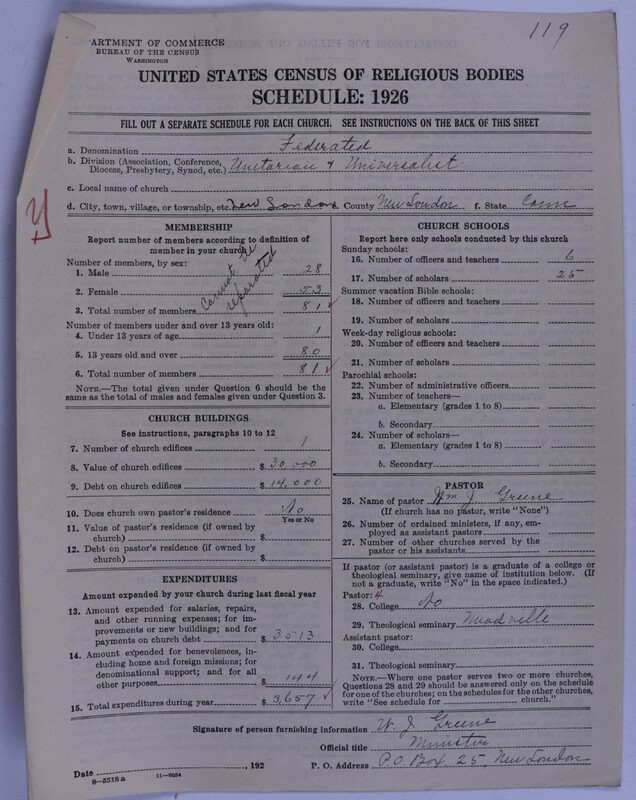 119
ARTMENT OF COMMERCE
BUREAU OF THE CENSUS
WASHINGTON
UNITED STATES CENSUS OF RELIGIOUS BODIES
SCHEDULE: 1926
FILL OUT A SEPARATE SCHEDULE FOR EACH CHURCH. SEE INSTRUCTIONS ON THE BACK OF THIS SHEET
a. Denomination Federated
b. Division (Association, Conference, Diocese, Presbytery, Synod, etc.) Unitarian & Universalist
c. Local name of church
d. City, town, village, or township, etc. New London e. County New London f. State Conn
MEMBERSHIP
Report number of members according to definition of
member in your church
Number of members, by sex:
cannot be
separated
1. Male 28
2. Female 53
3. Total number of members 81
Number of members under and over 13 years old:
4. Under 13 years of age 1
5. 13 years old and over 80
6. Total number of members 81
NOTE.—The total given under Question 6 should be
same as the total of males and females given under Question 3.
CHURCH BUILDINGS
See instructions, paragraphs 10 to 12
7. Number of church edifices 1
8. Value of church edifices $ 30,000
9. Debt on church edifices $ 14,000
10. Does church own pastor's residence No
Yes or No
11. Value of pastor's residence (if owned by
church) $
12. Debt on pastor's residence (if owned by
church) $
EXPENDITURES
Amount expended by your church during last fiscal year
13. Amount expended for salaries, repairs,
and other running expenses; for im-
provements or new buildings; and for
payments on church debt $ 3513
14. Amount expended for benevolences, in-
cluding home and foreign missions; for
denominational support; and for all
other purposes $ 144
15. Total expenditures during year $ 3,657
CHURCH SCHOOLS
Report here only schools conducted by this church
Sunday schools:
16. Number of officers and teachers 6
17. Number of scholars 25
Summer vacation Bible schools:
18. Number of officers and teachers
19. Number of scholars
Week-day religious schools:
20. Number of officers and teachers
21. Number of scholars
Parochial schools:
22. Number of administrative officers
23. Number of teachers—
a. Elementary (grades 1 to 8)
b. Secondary
24. Number of scholars—
a. Elementary (grades 1 to 8)
b. Secondary
PASTOR
25. Name of pastor Wm J. Greene
(If church has no pastor, write "None")
26. Number of ordained ministers, if any, em-
ployed as assistant pastors
27. Number of other churches served by the
pastor or his assistants
If pastor (or assistant pastor) is a graduate of a college or
theological seminary, give name of institution below. (If
not a graduate, write "No" in the space indicated.)
Pastor: 4
28. College No
29. Theological seminary Meadville
Assistant pastor:
30. College
31. Theological seminary
NOTE.—Where one pastor serves two or more churches,
Questions 28 and 29 should be answered only on the schedule
for one of the churches; on the schedules for the other churches,
write "See schedule for church."
Signature of person furnishing information W. J. Greene
Official title Minister
Date , 192 P. O. Address P.O. Box, 25, New London
8-5518a 11-9034